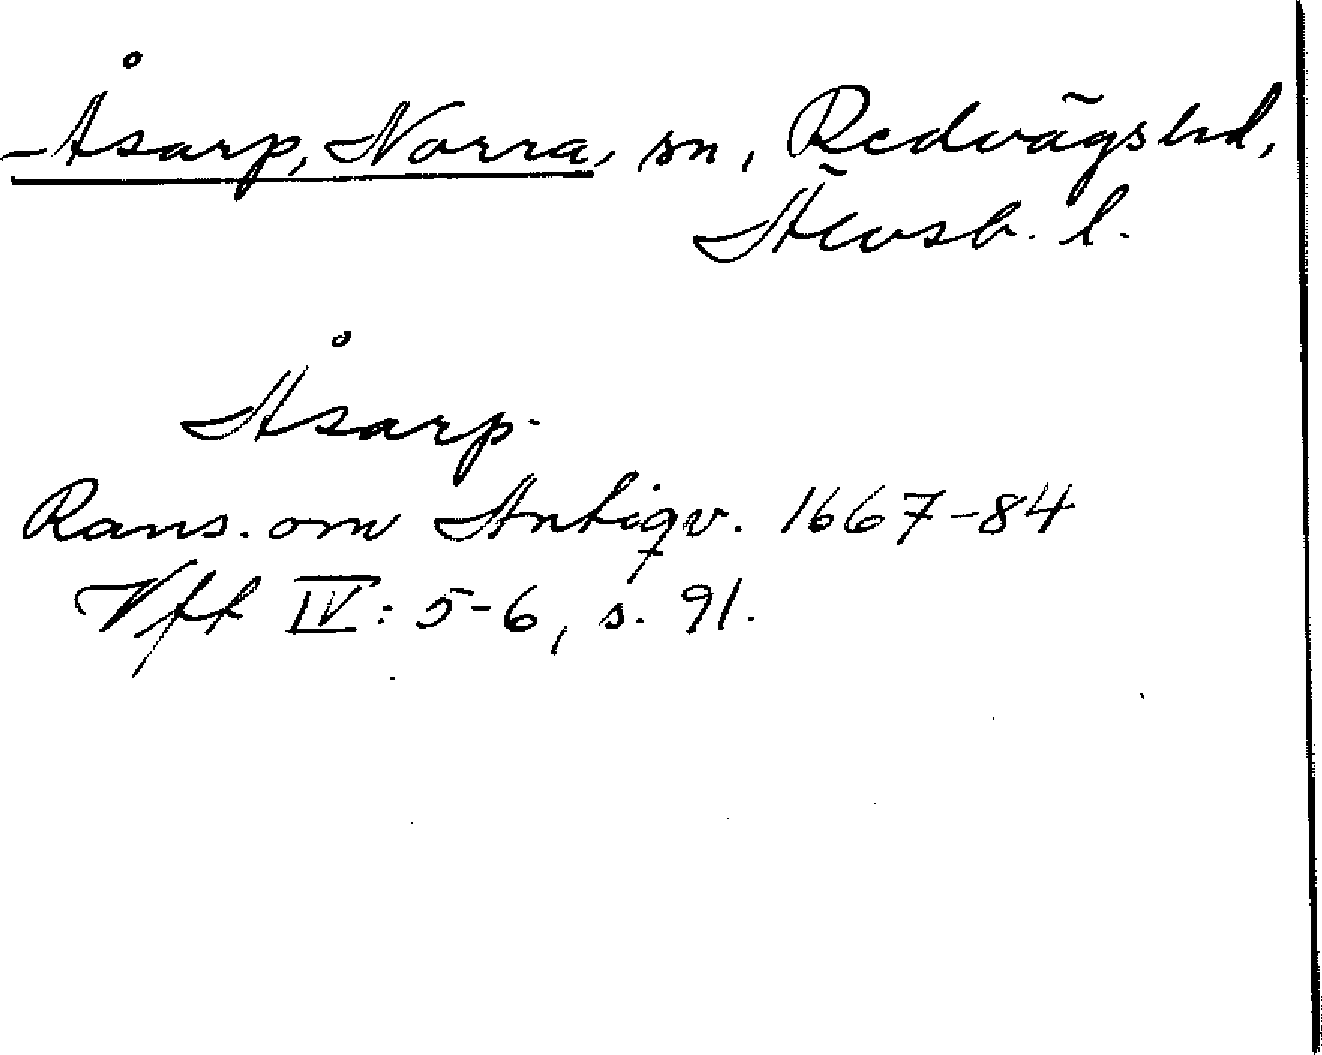 Åsarp, Norra, sn, Redvägs hd,
Älvsb. l.
Åsarp.
Rans. om Antiqv. 1667-84
Vft IV: 5-6, s. 91.